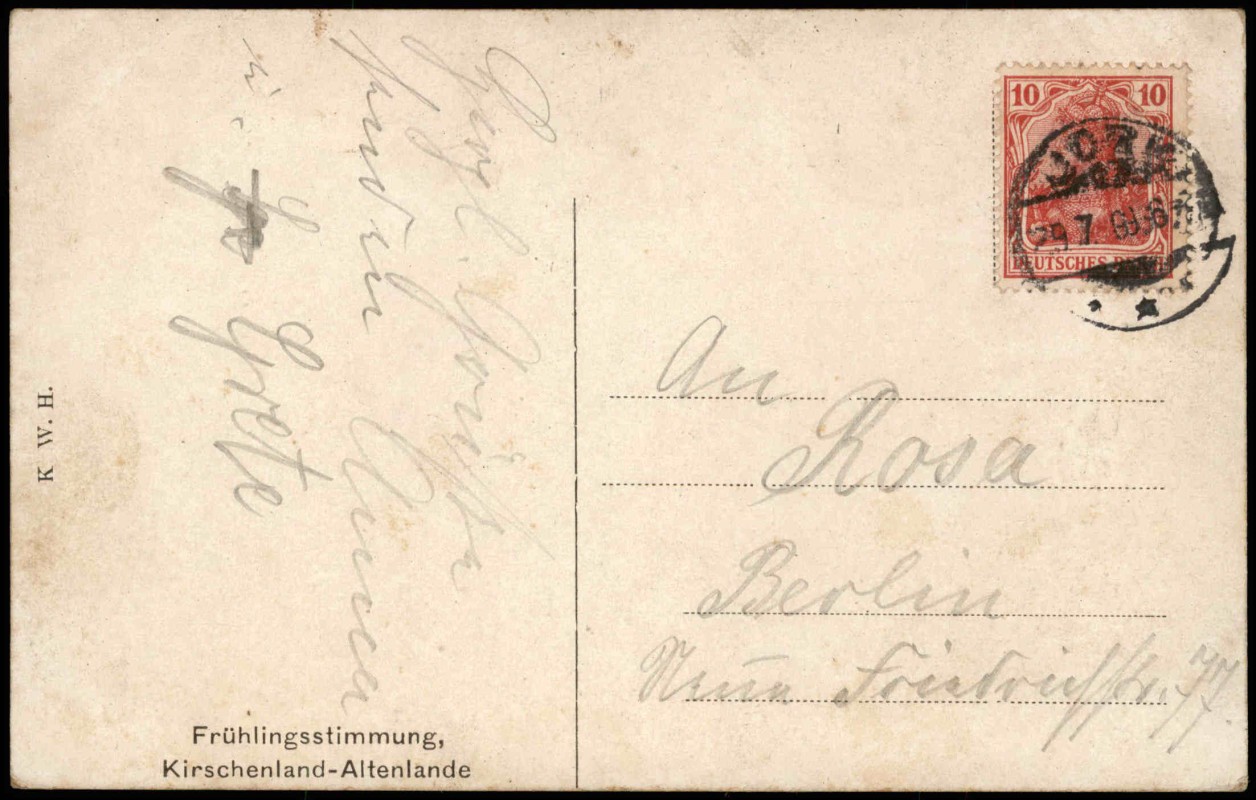 Herzl. Grüße
senden Anna
u. Grete
K W. H.
Frühlingsstimmung,
Kirschenland-Altenlande
10 10
DEUTSCHES
JORK
29 7
An
Rosa
Berlin
Neue Friedrichstr. 77.